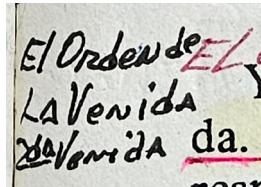 El Orden de EL
La Venida
Venida da.